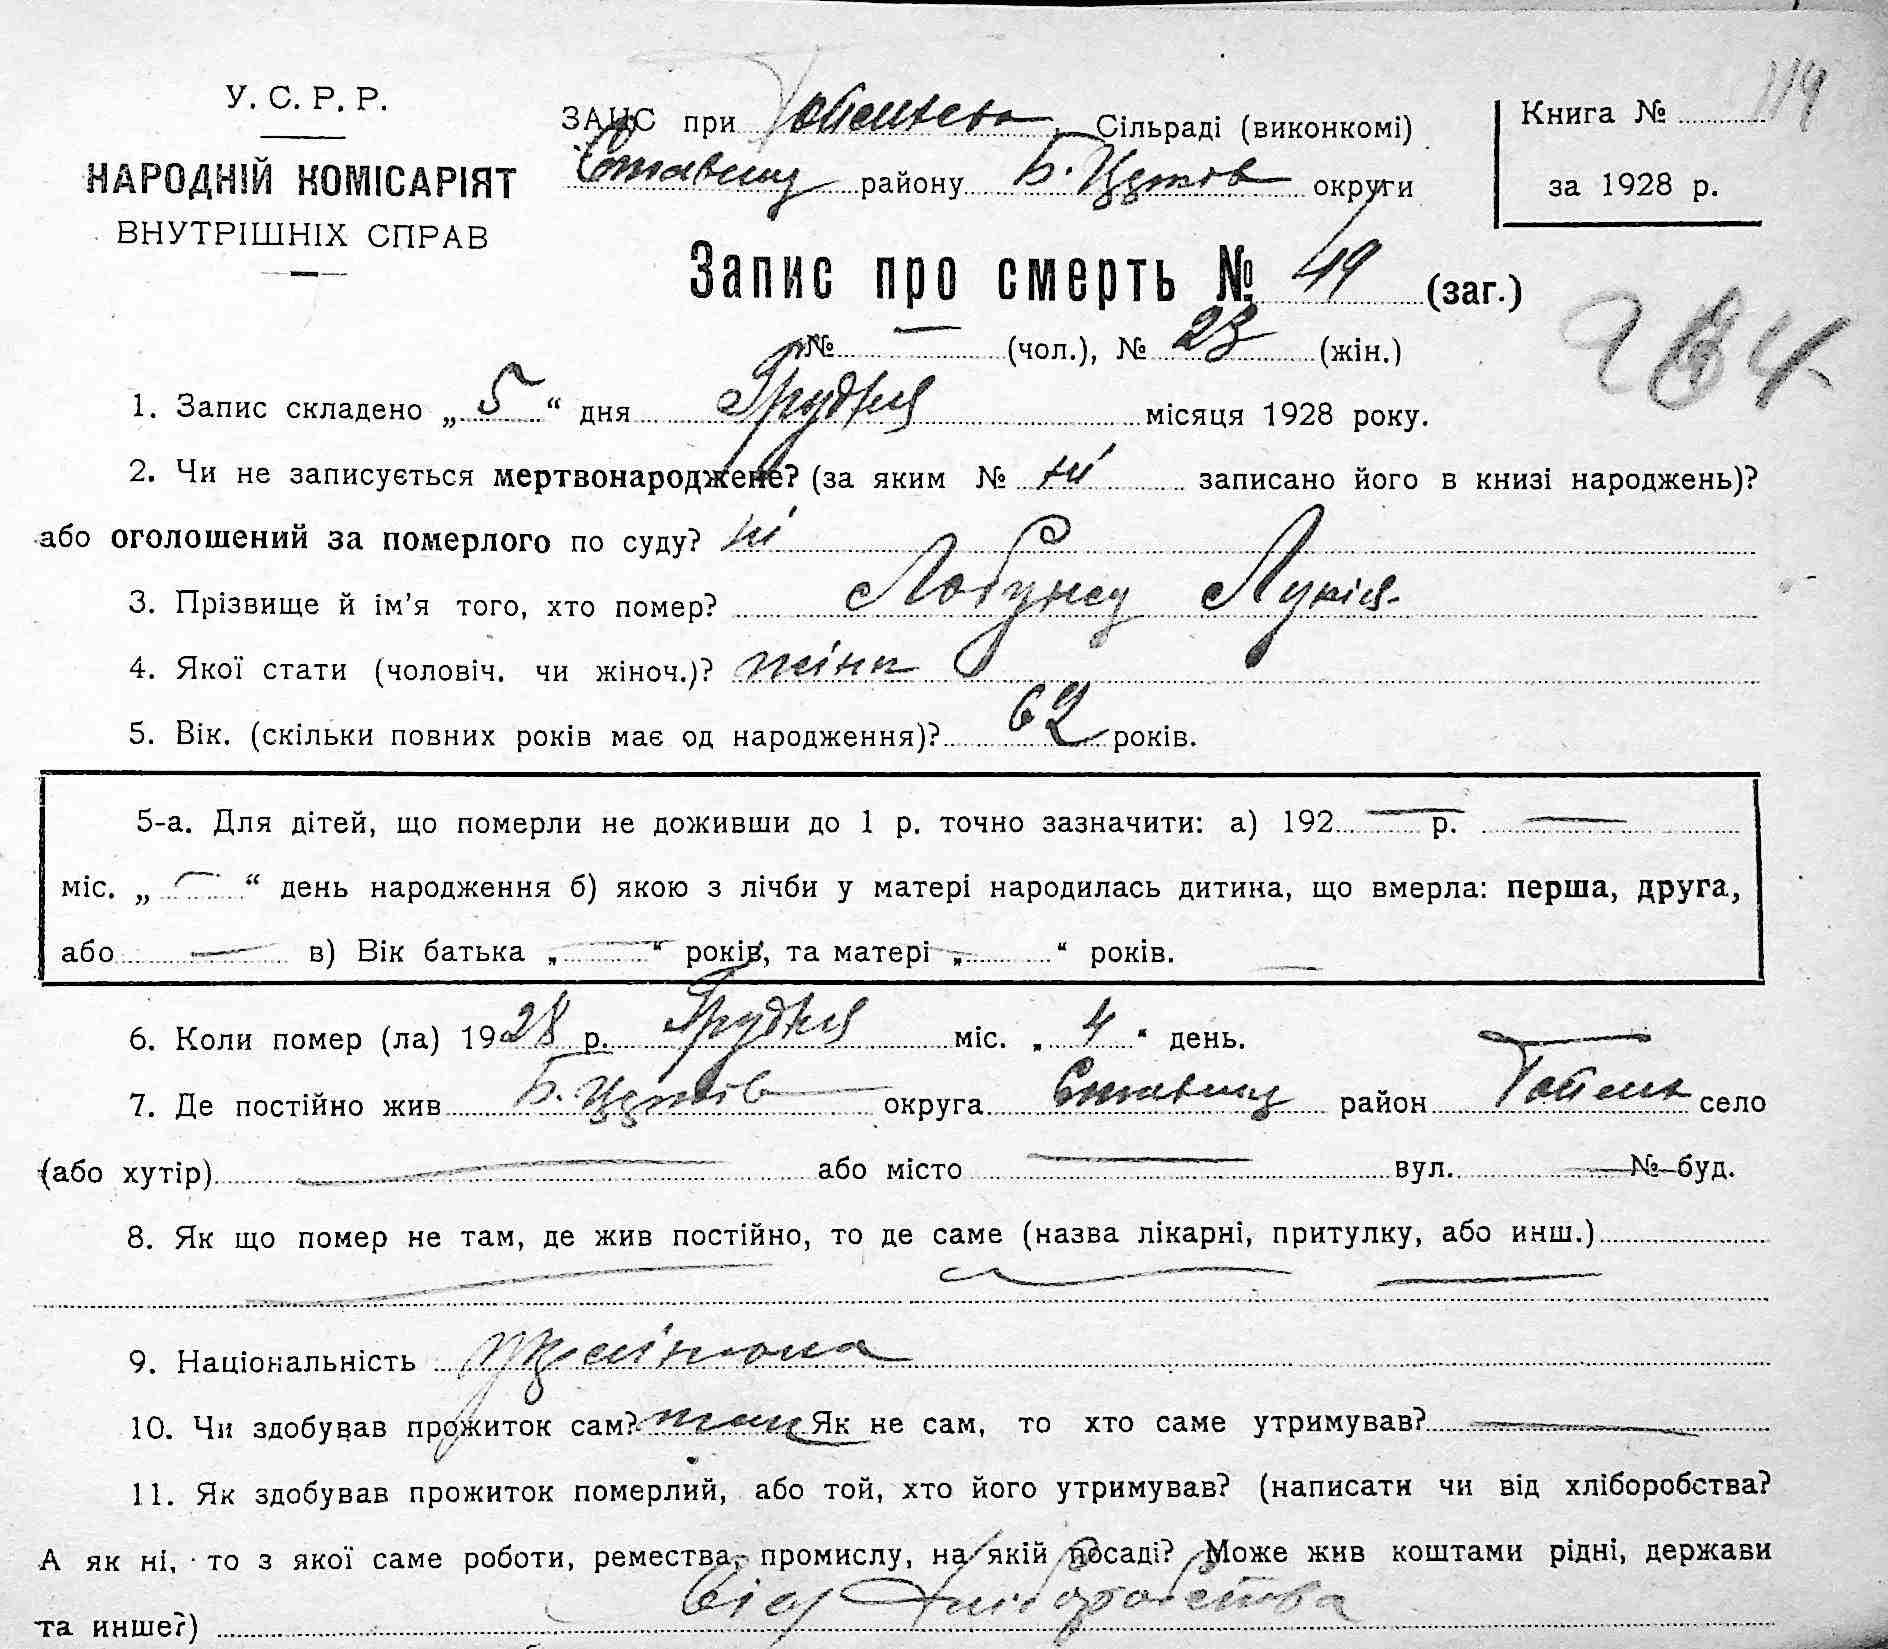 У. С. Р. Р.
НАРОДНІЙ КОМІСАРІЯТ
ВНУТРІШНІХ СПРАВ
ЗАЦС при Сільраді (виконкомі)
Ставищ району Б. Церков округи
Книга № 119
за 1928 р.
Запис про смерть № 49 (заг.)
№ — (чол.), № 23 (жін.)
264
1. Запис складено „ 5 “ дня Грудня місяця 1928 року.
2. Чи не записується мертвонароджене? (за яким № ні записано його в книзі народжень)?
або оголошений за померлого по суду? ні
3. Прізвище й ім’я того, хто помер? Лукія
4. Якої стати (чоловіч. чи жіноч.)? жіноч
5. Вік. (скільки повних років має од народження)? 62 років.
5-а. Для дітей, що померли не доживши до 1 р. точно зазначити: а) 192 — р. —
міс. „ — “ день народження б) якою з лічби у матері народилась дитина, що вмерла: перша, друга,
або — в) Вік батька „ — “ років, та матері „ — “ років.
6. Коли помер (ла) 1928 р. Грудня міс. „ 4 “ день.
7. Де постійно жив Б. Церків округа Ставищ район село
(або хутір) — або місто — вул. — № буд.
8. Як що помер не там, де жив постійно, то де саме (назва лікарні, притулку, або инш.)
9. Національність українка
10. Чи здобував прожиток сам? так Як не сам, то хто саме утримував? —
11. Як здобував прожиток померлий, або той, хто його утримував? (написати чи від хліборобства?
А як ні, то з якої саме роботи, ремества, промислу, на якій посаді? Може жив коштами рідні, держави
та инше?) Від хліборобства